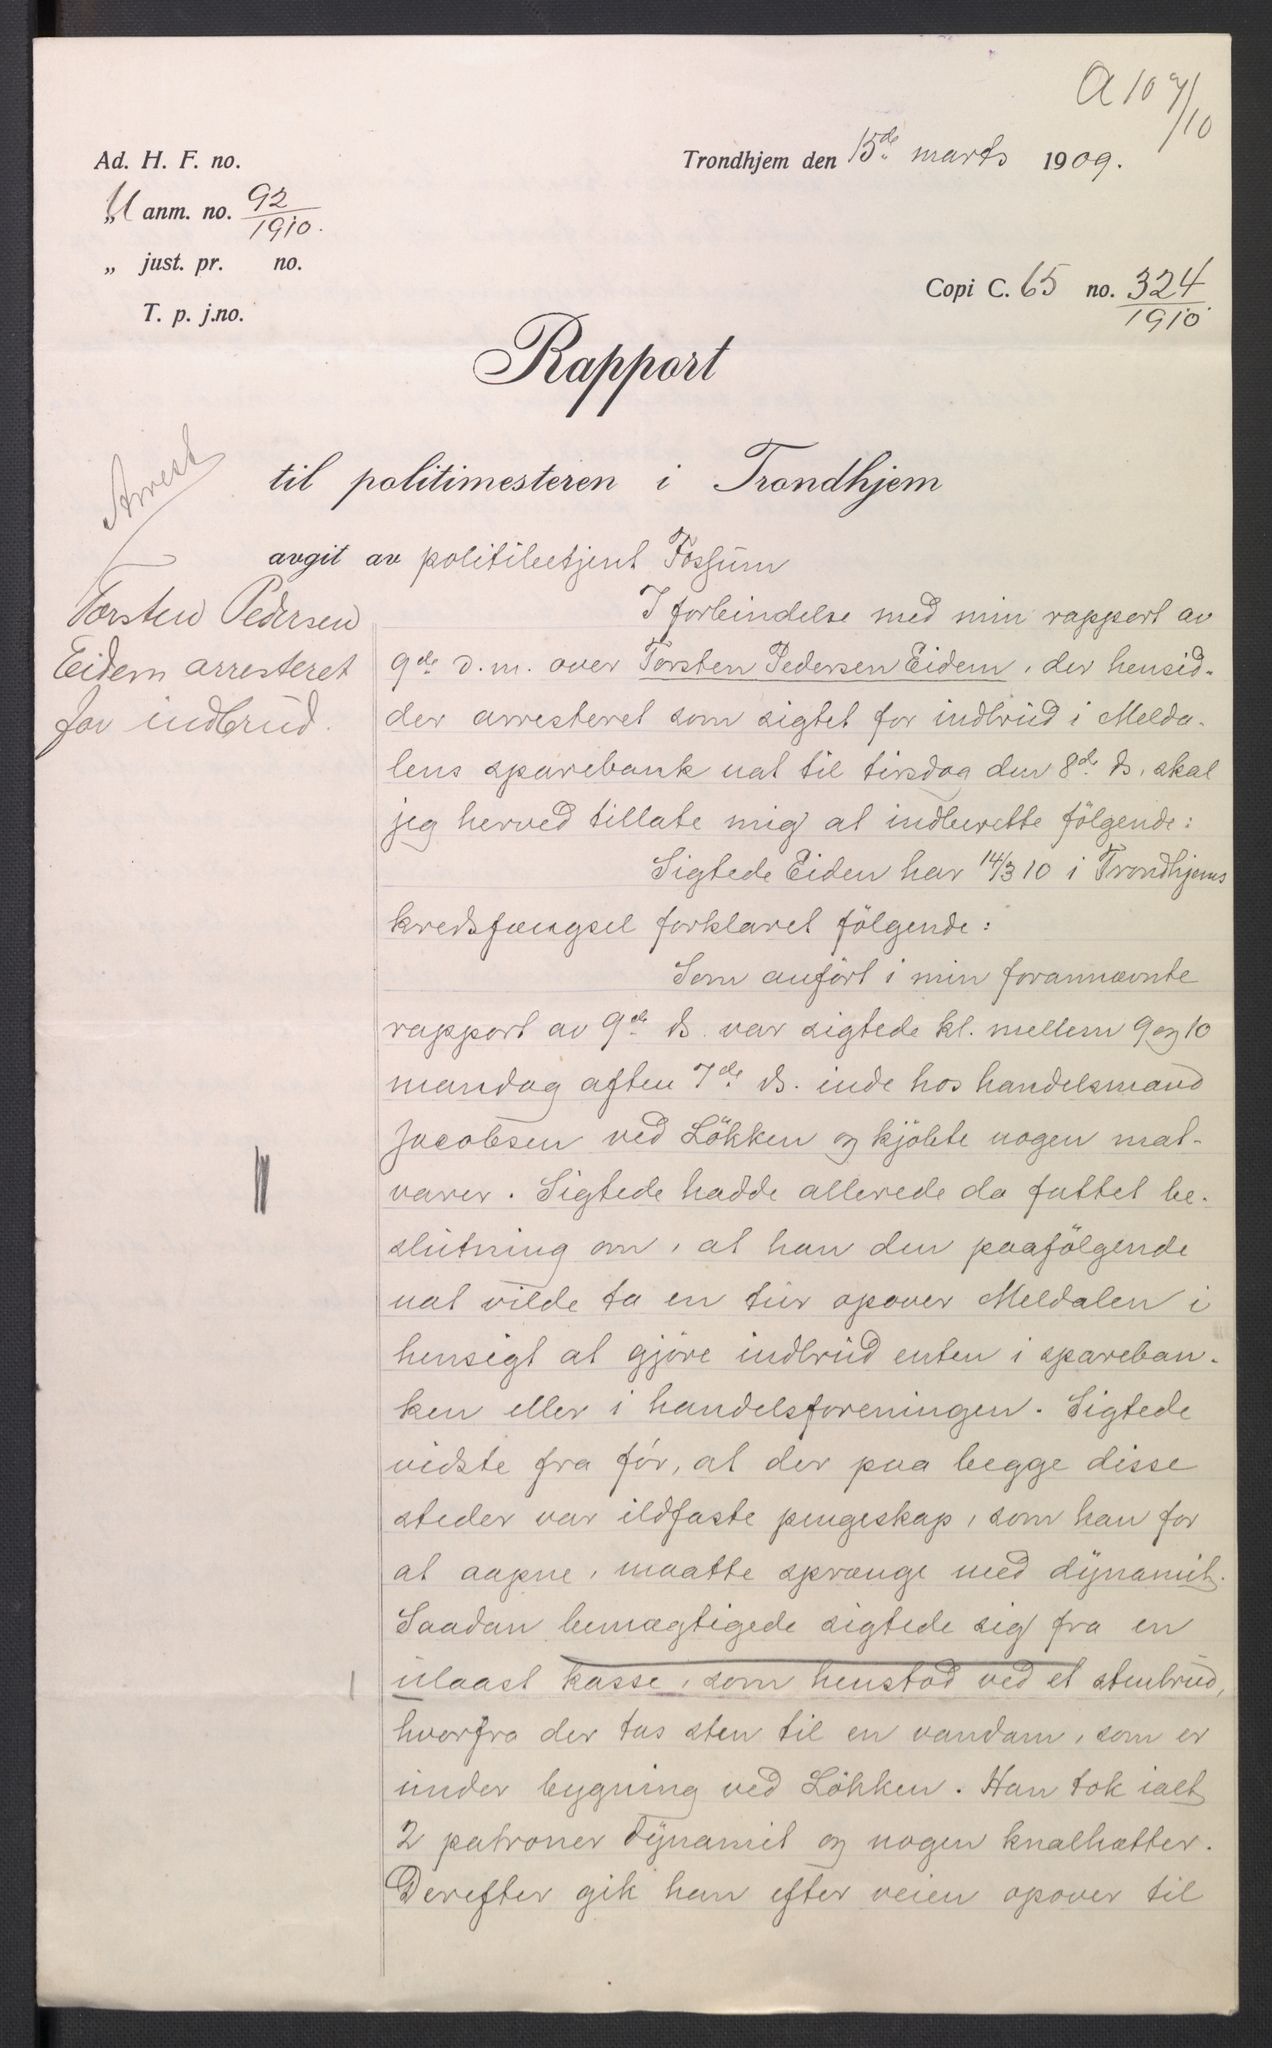 A 107/10
Ad. H. F. no.
Trondhjem den 15de marts 1909.
„ U anm. no. 92/1910.
„ just. pr. no.
Copi C. 65 no. 324/1910.
T. p. j.no.
Rapport
Arrest
til politimesteren i Trondhjem
avgit av politibetjent Fossum
Torsten Pedersen
Eidem arresteret
for indbrud.
I forbindelse med min rapport av
9de d.m. over Torsten Pedersen Eidem, der hensid-
der arresteret som sigtet for indbrud i Melda-
lens sparebank nat til tirsdag den 8de ds, skal
jeg herved tillate mig at indberette følgende:
Sigtede Eidem har 14/3 10 i Trondhjems
kredsfængsel forklaret følgende:
Som anført i min forannævnte
rapport av 9de ds. var sigtede kl. mellem 9 og 10
mandag aften 7de ds. inde hos handelsmand
Jacobsen ved Løkken og kjøbte nogen mat-
varer. Sigtede hadde allerede da fattet be-
slutning om, at han den paafølgende
nat vilde ta en tur opover Meldalen i
hensigt at gjøre indbrud enten i spareban-
ken eller i handelsforeningen. Sigtede
vidste fra før, at der paa begge disse
steder var ildfaste pengeskap, som han for
at aapne, maatte sprænge med dynamit.
Saadan bemægtigede sigtede sig fra en
ulaast kasse, som henstod ved et stenbrud,
hvorfra der tas sten til en vandam, som er
under bygning ved Løkken. Han tok ialt
2 patroner dynamit og nogen knalhætter.
Derefter gik han efter veien opover til